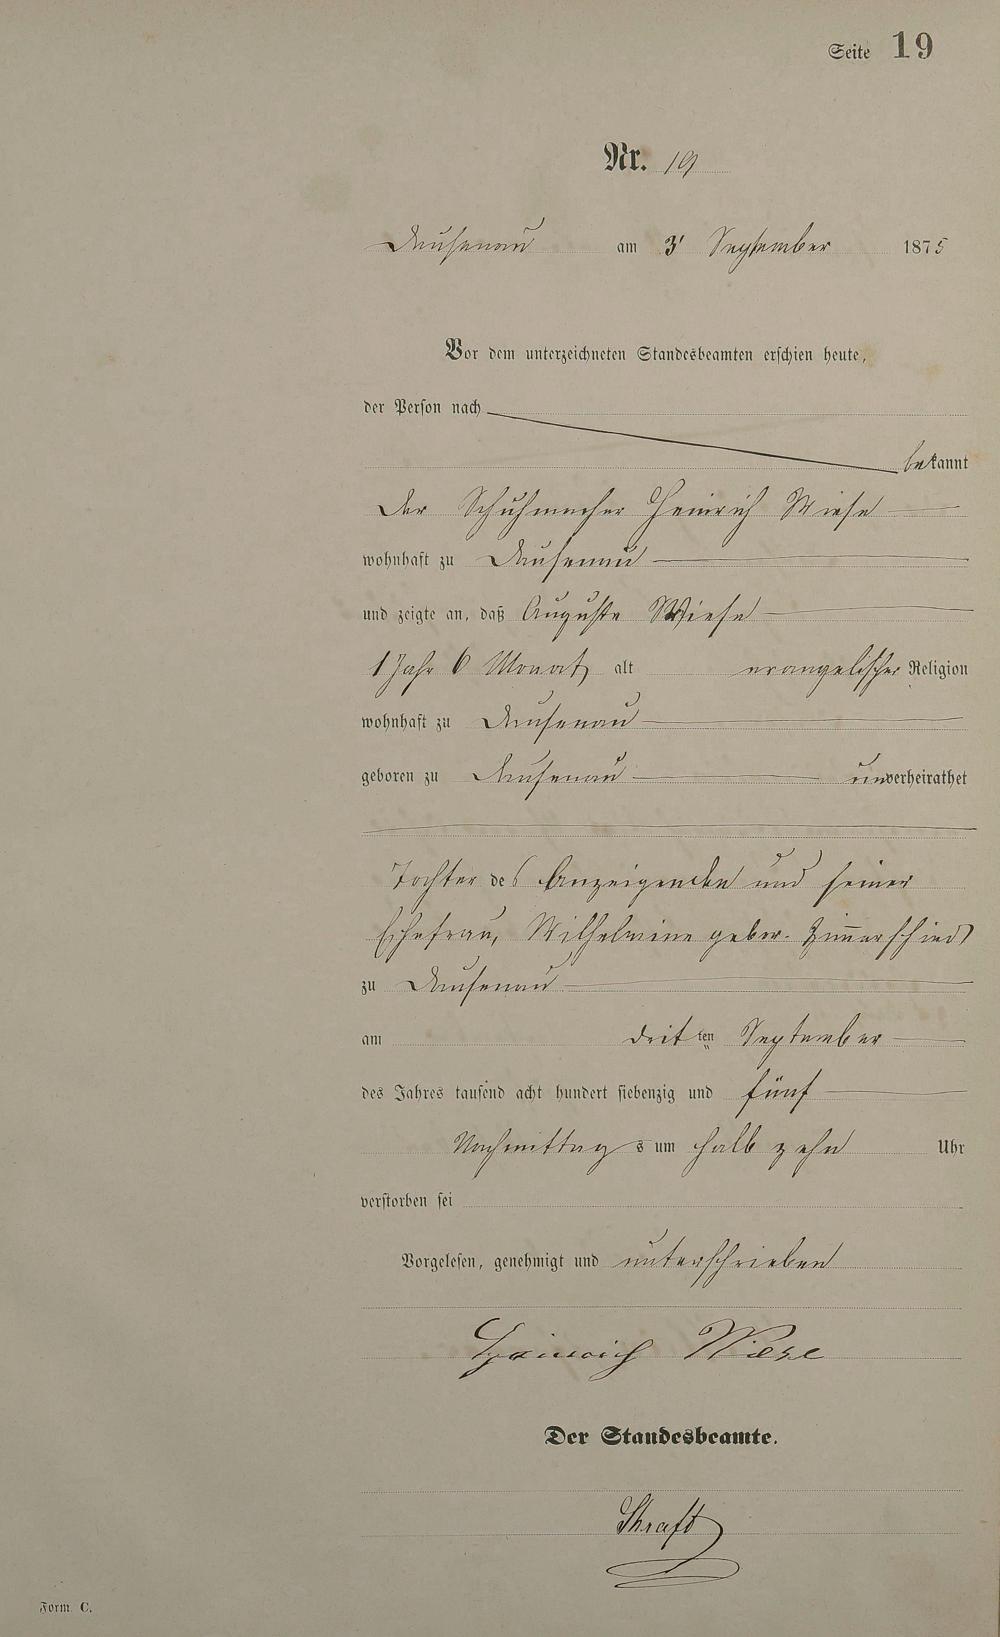 Seite 19
Nr. 19
Dausenau am 3' September 1875
Vor dem unterzeichneten Standesbeamten erschien heute,
der Person nach
bekannt
der Schuhmacher Heinrich Wiese
wohnhaft zu Dausenau
und zeigte an, daß Auguste Wiese
1 Jahr 6 Monat alt evangelischer Religion
wohnhaft zu Dausenau
geboren zu Dausenau unverheirathet
Tochter des Anzeigenden und seiner
Ehefrau, Wilhelmine gebor. Zim̅erschied
zu Dausenau
am dritten September
des Jahres tausend acht hundert siebenzig und fünf
Nachmittags um halb zehn Uhr
verstorben sei
Vorgelesen, genehmigt und unterschrieben
Heinrich Wiese
Der Standesbeamte.
Form. C.